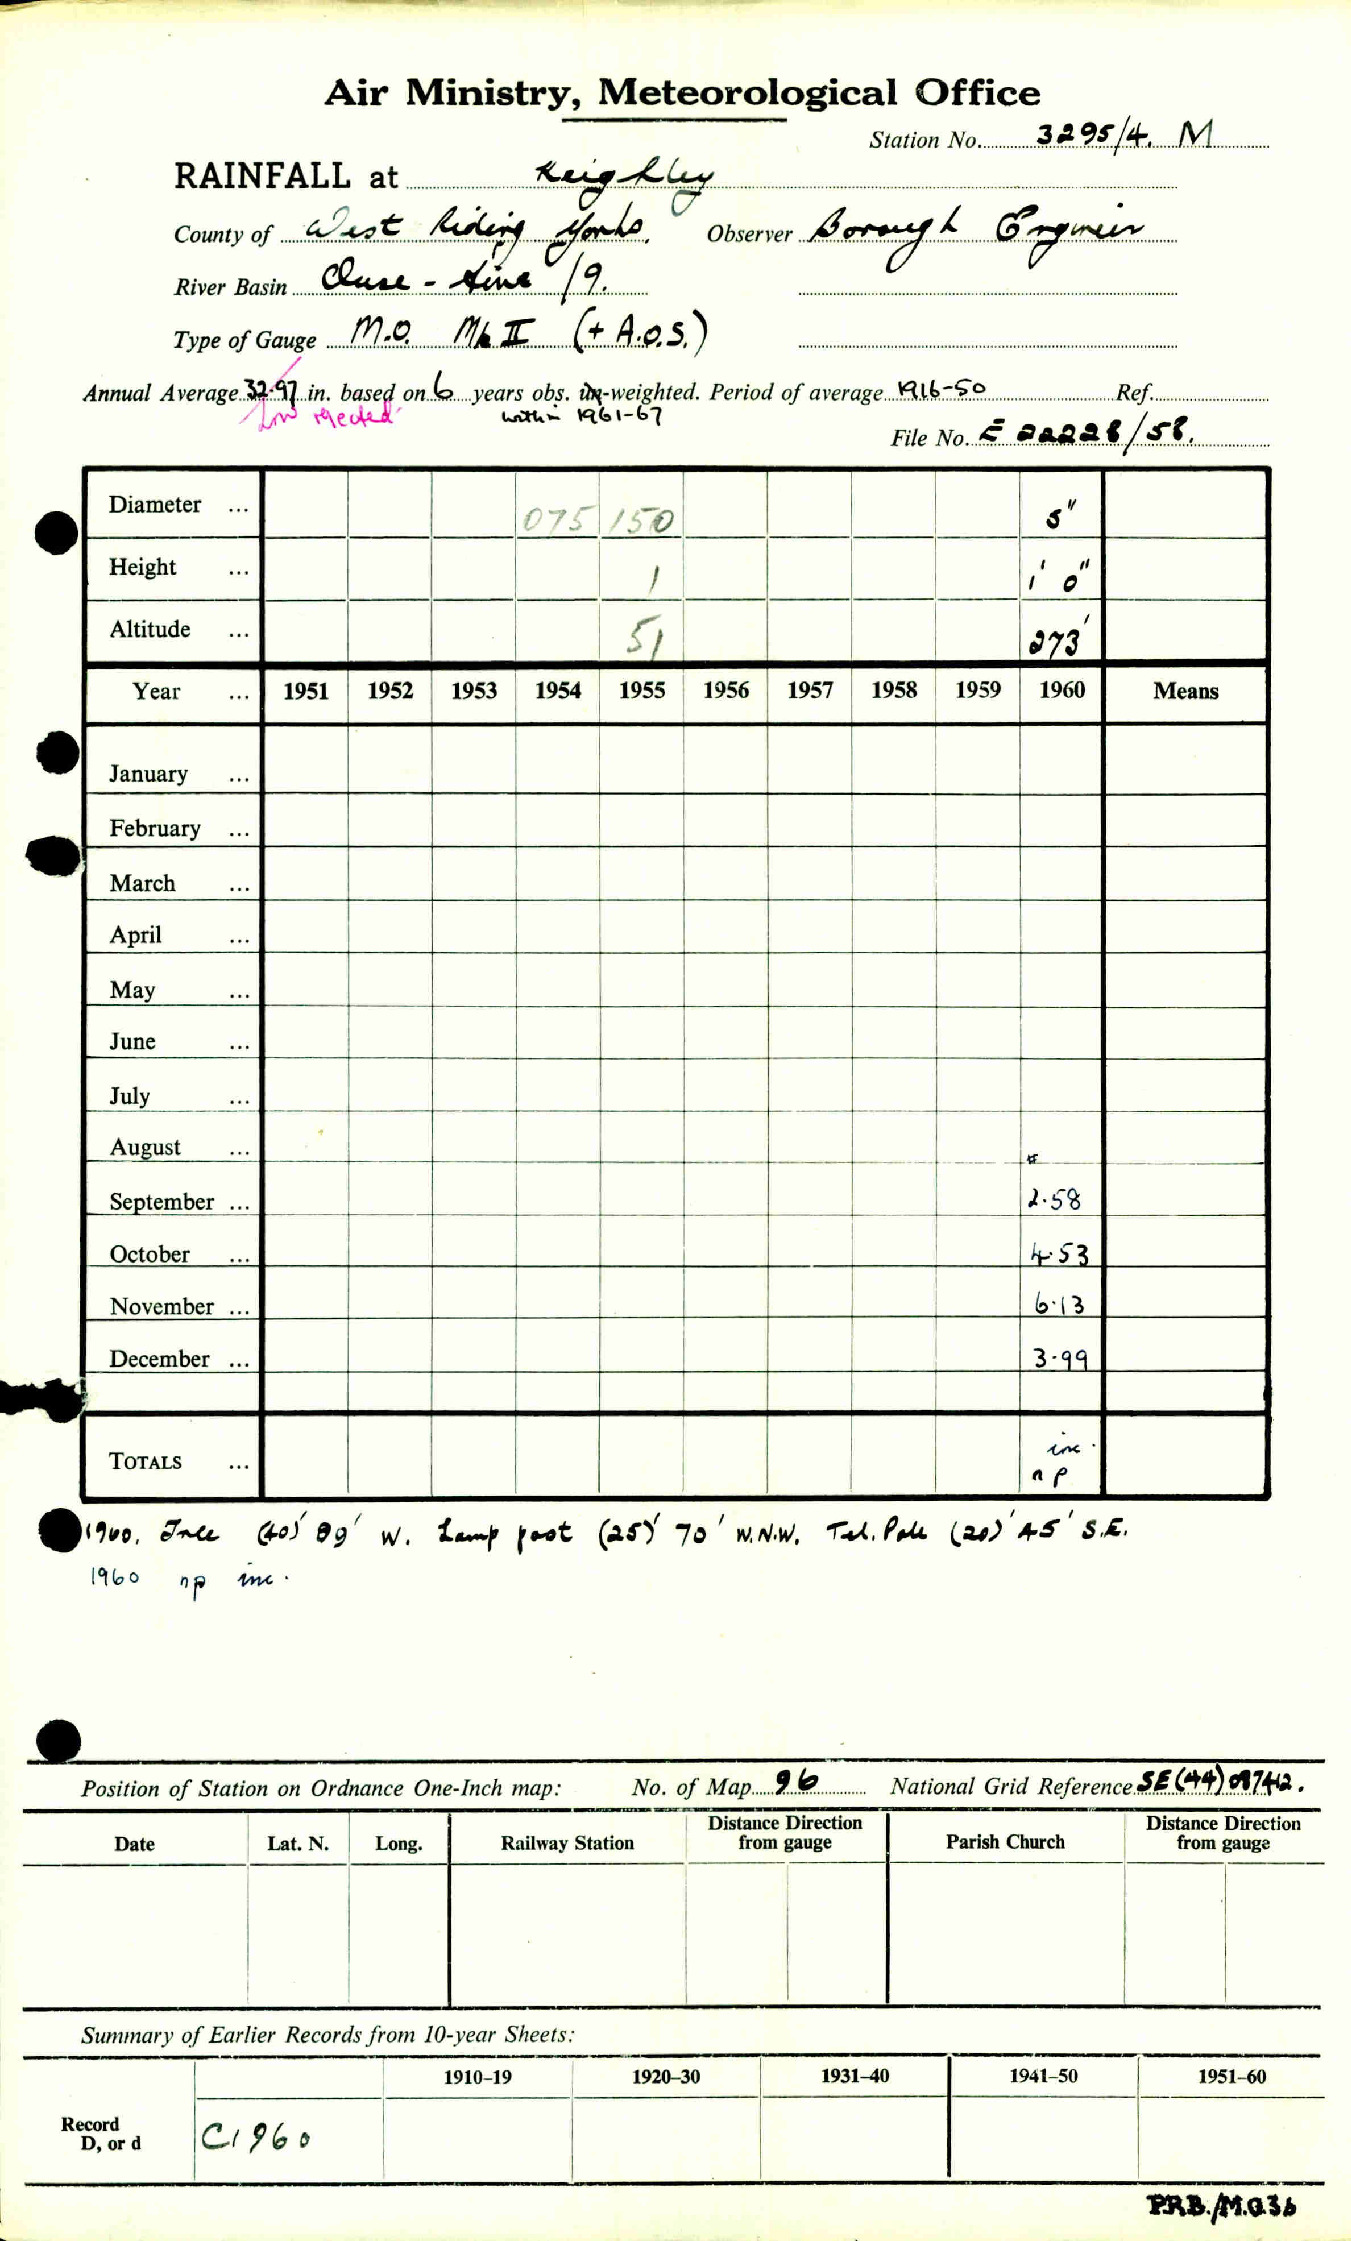 Air Ministry, Meteorological Office
Station No. 3295/4. M
RAINFALL at Keighley
County of West Riding Yorks. Observer Borough Engineer
River Basin Ouse - Aire /9.
Type of Gauge M.O. Mk II (+ A.O.S.)
Annual Average 32.97 in. based on 6 years obs. un-weighted. Period of average 1916-50 Ref.
rejected within 1961-67
File No. E 22228/58.
Diameter ... 075 150 5"
Height ... 1 1' 0"
Altitude ... 51 273'
Year ... 1951 1952 1953 1954 1955 1956 1957 1958 1959 1960 Means
January ...
February ...
March ...
April ...
May ...
June ...
July ...
August ...
September ... 2.58
October ... 4.53
November ... 6.13
December ... 3.99
TOTALS ... inc.
n p
1960. Tree (40)' 89' W. Lamp post (25)' 70' W.N.W. Tel. Pole (20)' 45' S.E.
1960 np inc.
Position of Station on Ordnance One-Inch map: No. of Map 96 National Grid Reference SE(44)
Date Lat. N. Long. Railway Station Distance Direction from gauge Parish Church Distance Direction from gauge
Summary of Earlier Records from 10-year Sheets:
1910–19 1920–30 1931–40 1941–50 1951–60
Record
D, or d C1960